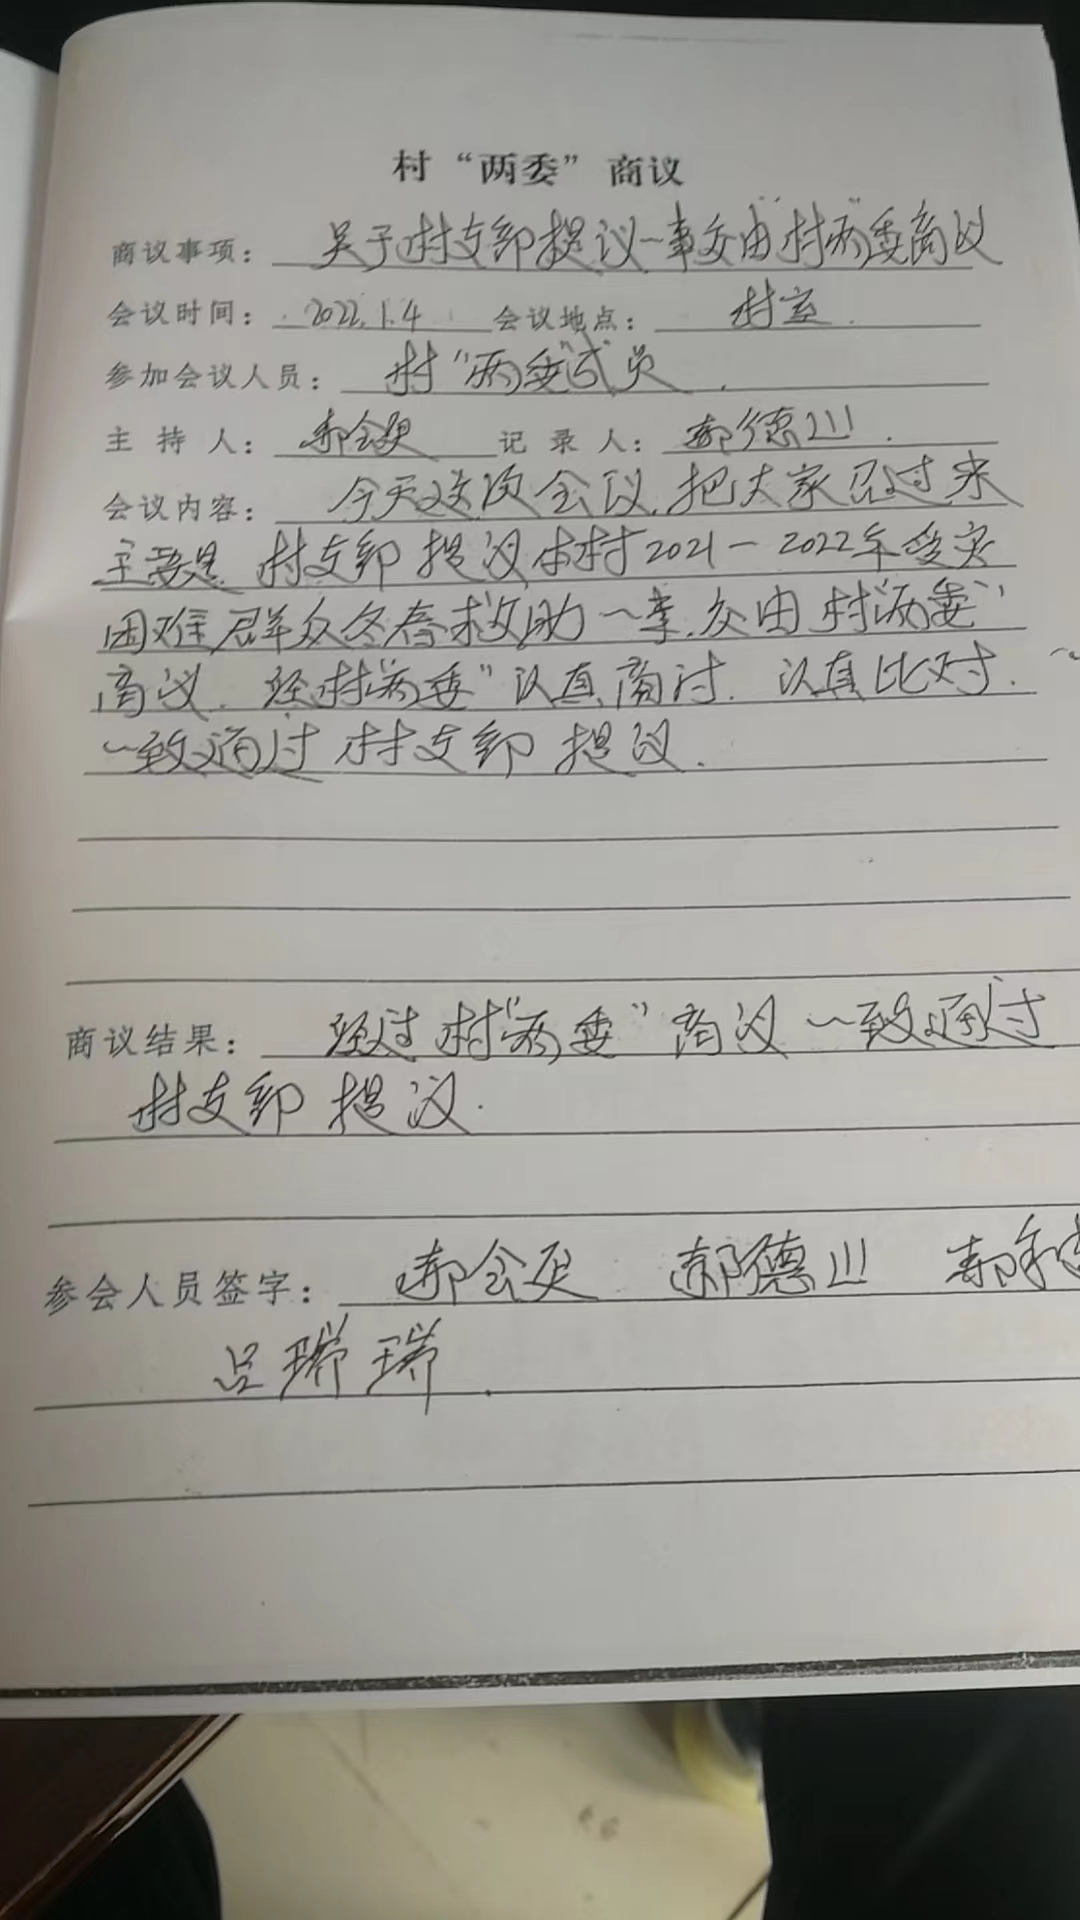 村“两委”商议
商议事项：关于村支部提议一事交由“村两”委商议
会议时间：2022.1.4 会议地点：村室.
参加会议人员：村“两委”成员.
主持人：郝会 记录人：郝德川.
会议内容：今天这次会议,把大家召过来
主要是 村支部 提议本村2021—2022年受灾
困难群众冬春救助一事.交由村“两委”
商议. 经村“两委”认真商讨. 认真比对.
一致通过 村支部 提议.
商议结果：经过村“两委”商议 一致通过
村支部 提议.
参会人员签字：郝会 郝德川 郝
吕瑞瑞.